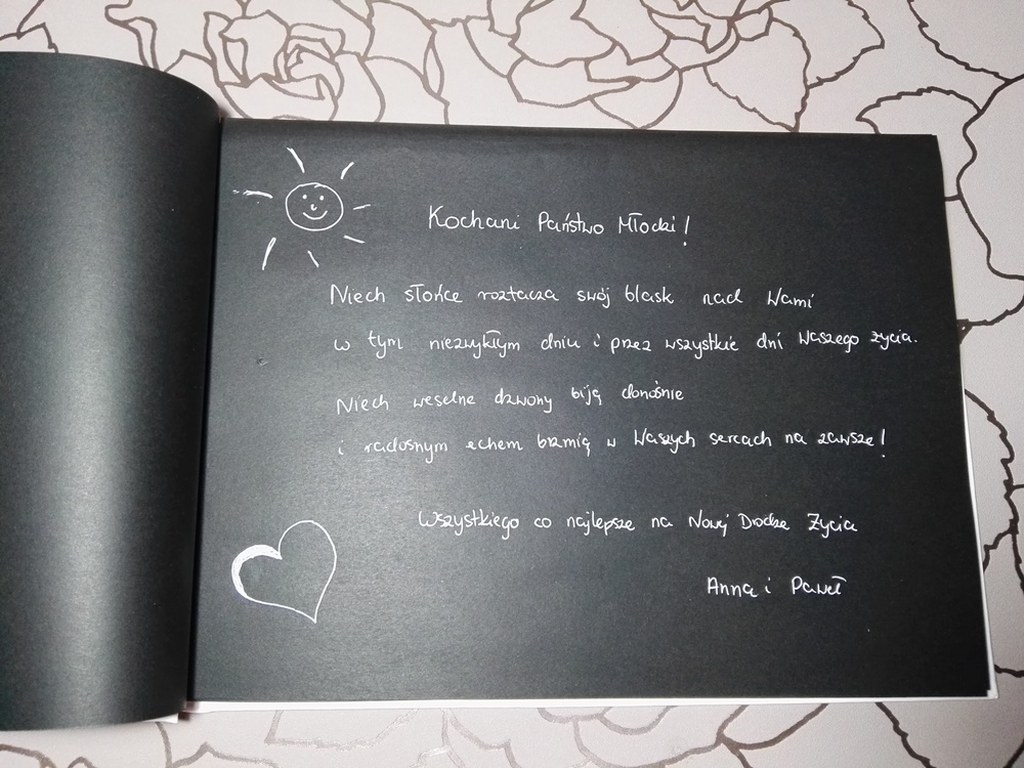 Kochani Państwo Młodzi!
Niech słońce roztacza swój blask nad Wami
w tym niezwykłym dniu i przez wszystkie dni Waszego życia.
Niech weselne dzwony biją donośnie
i radosnym echem brzmią w Waszych sercach na zawsze!
Wszystkiego co najlepsze na Nowej Drodze Życia
Anna i Paweł